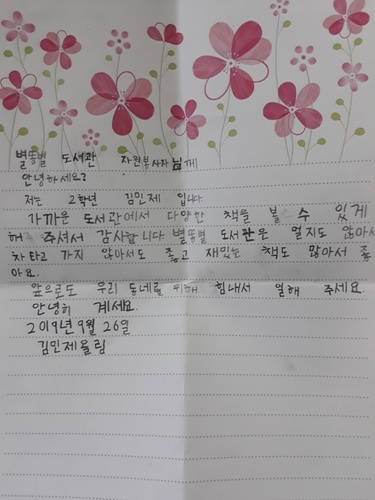 별똥별 도서관 자원봉사자님께
안녕하세요?
저는 2학년 김민제 입니다
가까운 도서관에서 다양한 책을 볼 수 있게
해 주셔서 감사합니다 별똥별 도서관은 멀지도 않아서
차타고 가지 않아서도 좋고 재밌는 책도 많아서 좋
아요.
앞으로도 우리 동네를 위해 힘내서 일해 주세요.
안녕히 계세요.
2019년 9월 26일
김민제올림